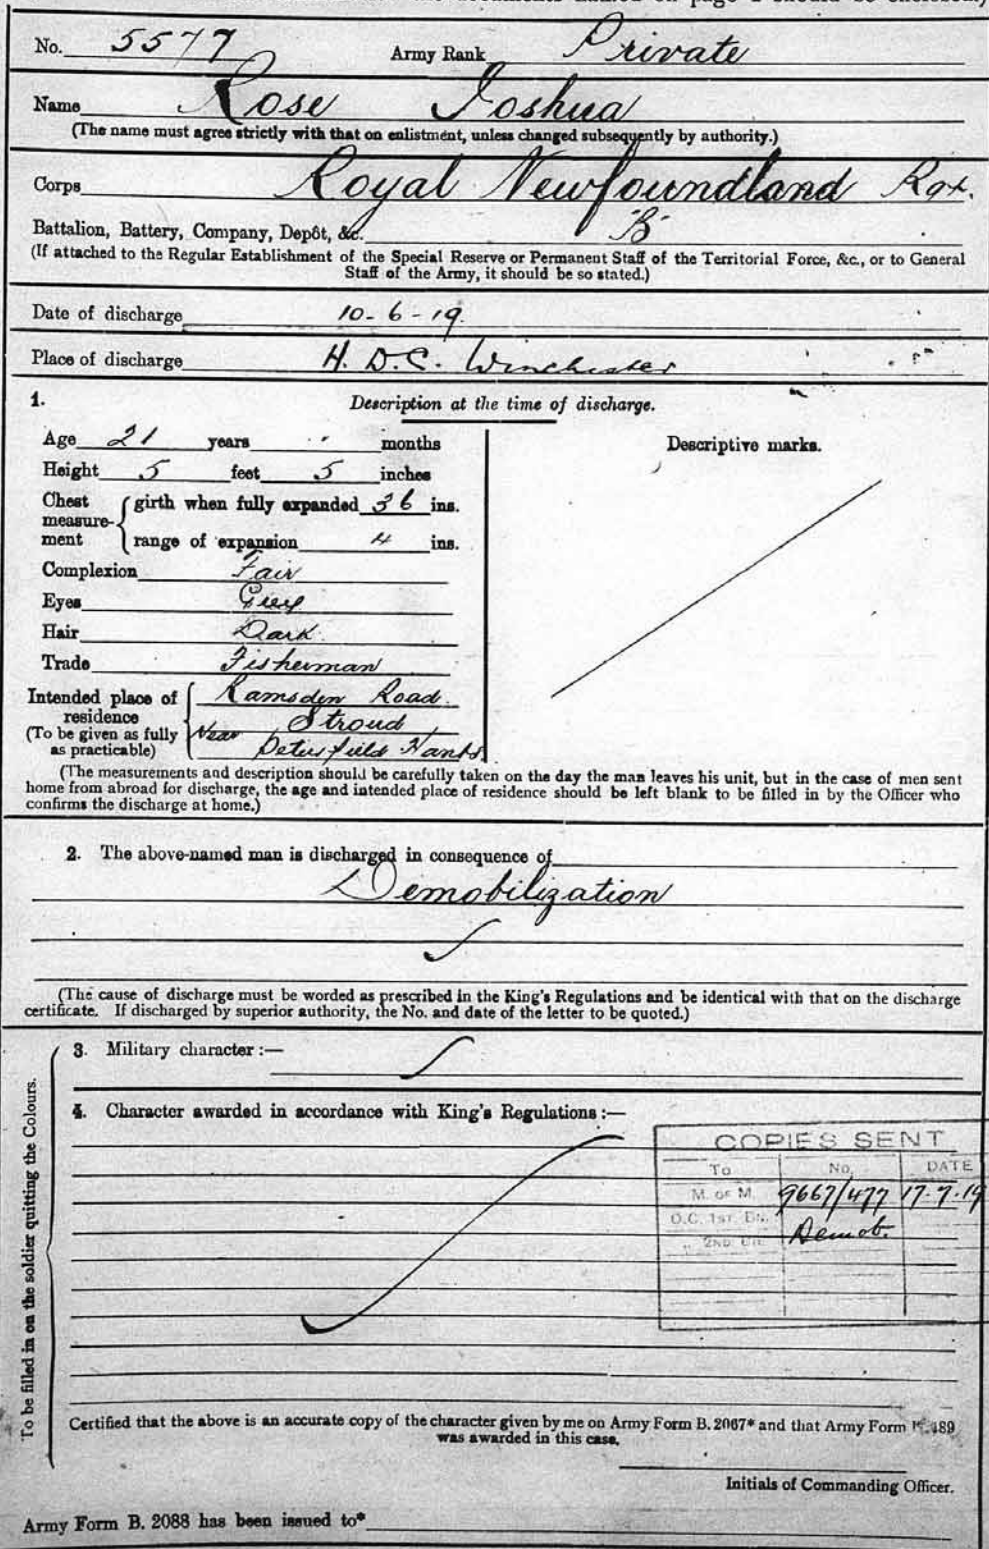 No. 5577 Army Rank Private
Name Rose Joshua
(The name must agree strictly with that on enlistment, unless changed subsequently by authority.)
Corps Royal Newfoundland Rgt.
Battalion, Battery, Company, Depôt, &c. "B"
(If attached to the Regular Establishment of the Special Reserve or Permanent Staff of the Territorial Force, &c., or to General
Staff of the Army, it should be so stated.)
Date of discharge 10-6-19.
Place of discharge H.D.C. Winchester
1. Description at the time of discharge.
Age 21 years months
Height 5 feet 5 inches
Chest measurement girth when fully expanded 36 ins.
range of expansion 4 ins.
Complexion Fair
Eyes Grey
Hair Dark
Trade Fisherman
Intended place of residence (To be given as fully as practicable)
Ramsden Road.
Stroud
Near Petersfield Hants
Descriptive marks.
(The measurements and description should be carefully taken on the day the man leaves his unit, but in the case of men sent
home from abroad for discharge, the age and intended place of residence should be left blank to be filled in by the Officer who
confirms the discharge at home.)
2. The above-named man is discharged in consequence of
Demobilization
(The cause of discharge must be worded as prescribed in the King's Regulations and be identical with that on the discharge
certificate. If discharged by superior authority, the No. and date of the letter to be quoted.)
To be filled in on the soldier quitting the Colours.
3. Military character :—
4. Character awarded in accordance with King's Regulations :—
COPIES SENT
To No. DATE
M. OF M. 9667/477 17.7.19
O.C. 1st. Bn. Demob.
2ND
Certified that the above is an accurate copy of the character given by me on Army Form B. 2067* and that Army Form 489
was awarded in this case.
Initials of Commanding Officer.
Army Form B. 2088 has been issued to*